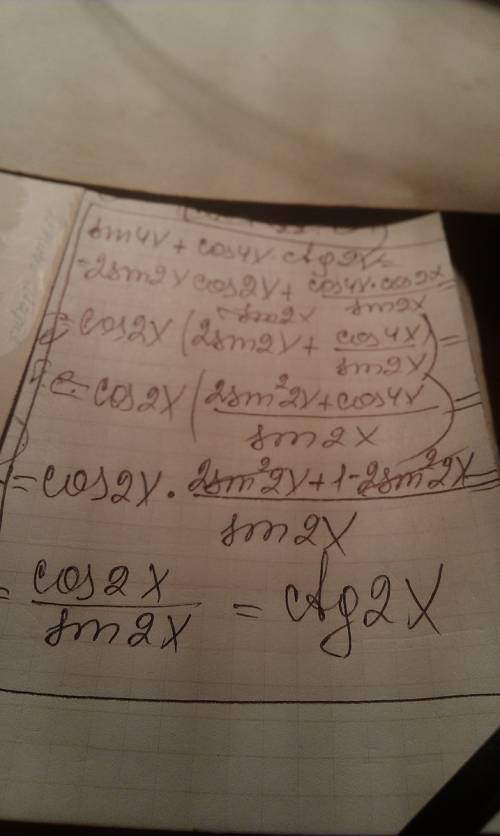 sin4x + cos4x · ctg2x =
= 2sin2x cos2x + cos4x · cos2x / sin2x =
= cos2x (2sin2x + cos4x / sin2x) =
= cos2x (2sin²2x + cos4x / sin2x) =
= cos2x · 2sin²2x + 1 - 2sin²2x / sin2x =
= cos2x / sin2x = ctg2x